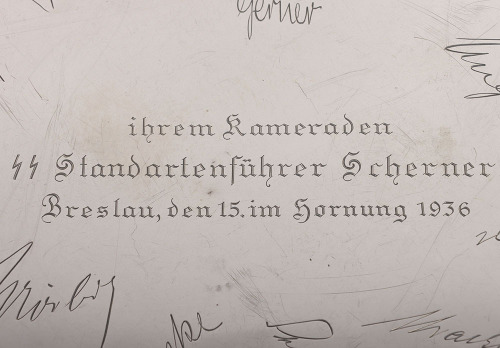 Gerner
ihrem Kameraden
ᛋᛋ Standartenführer Scherner
Breslau, den 15. im Hornung 1936